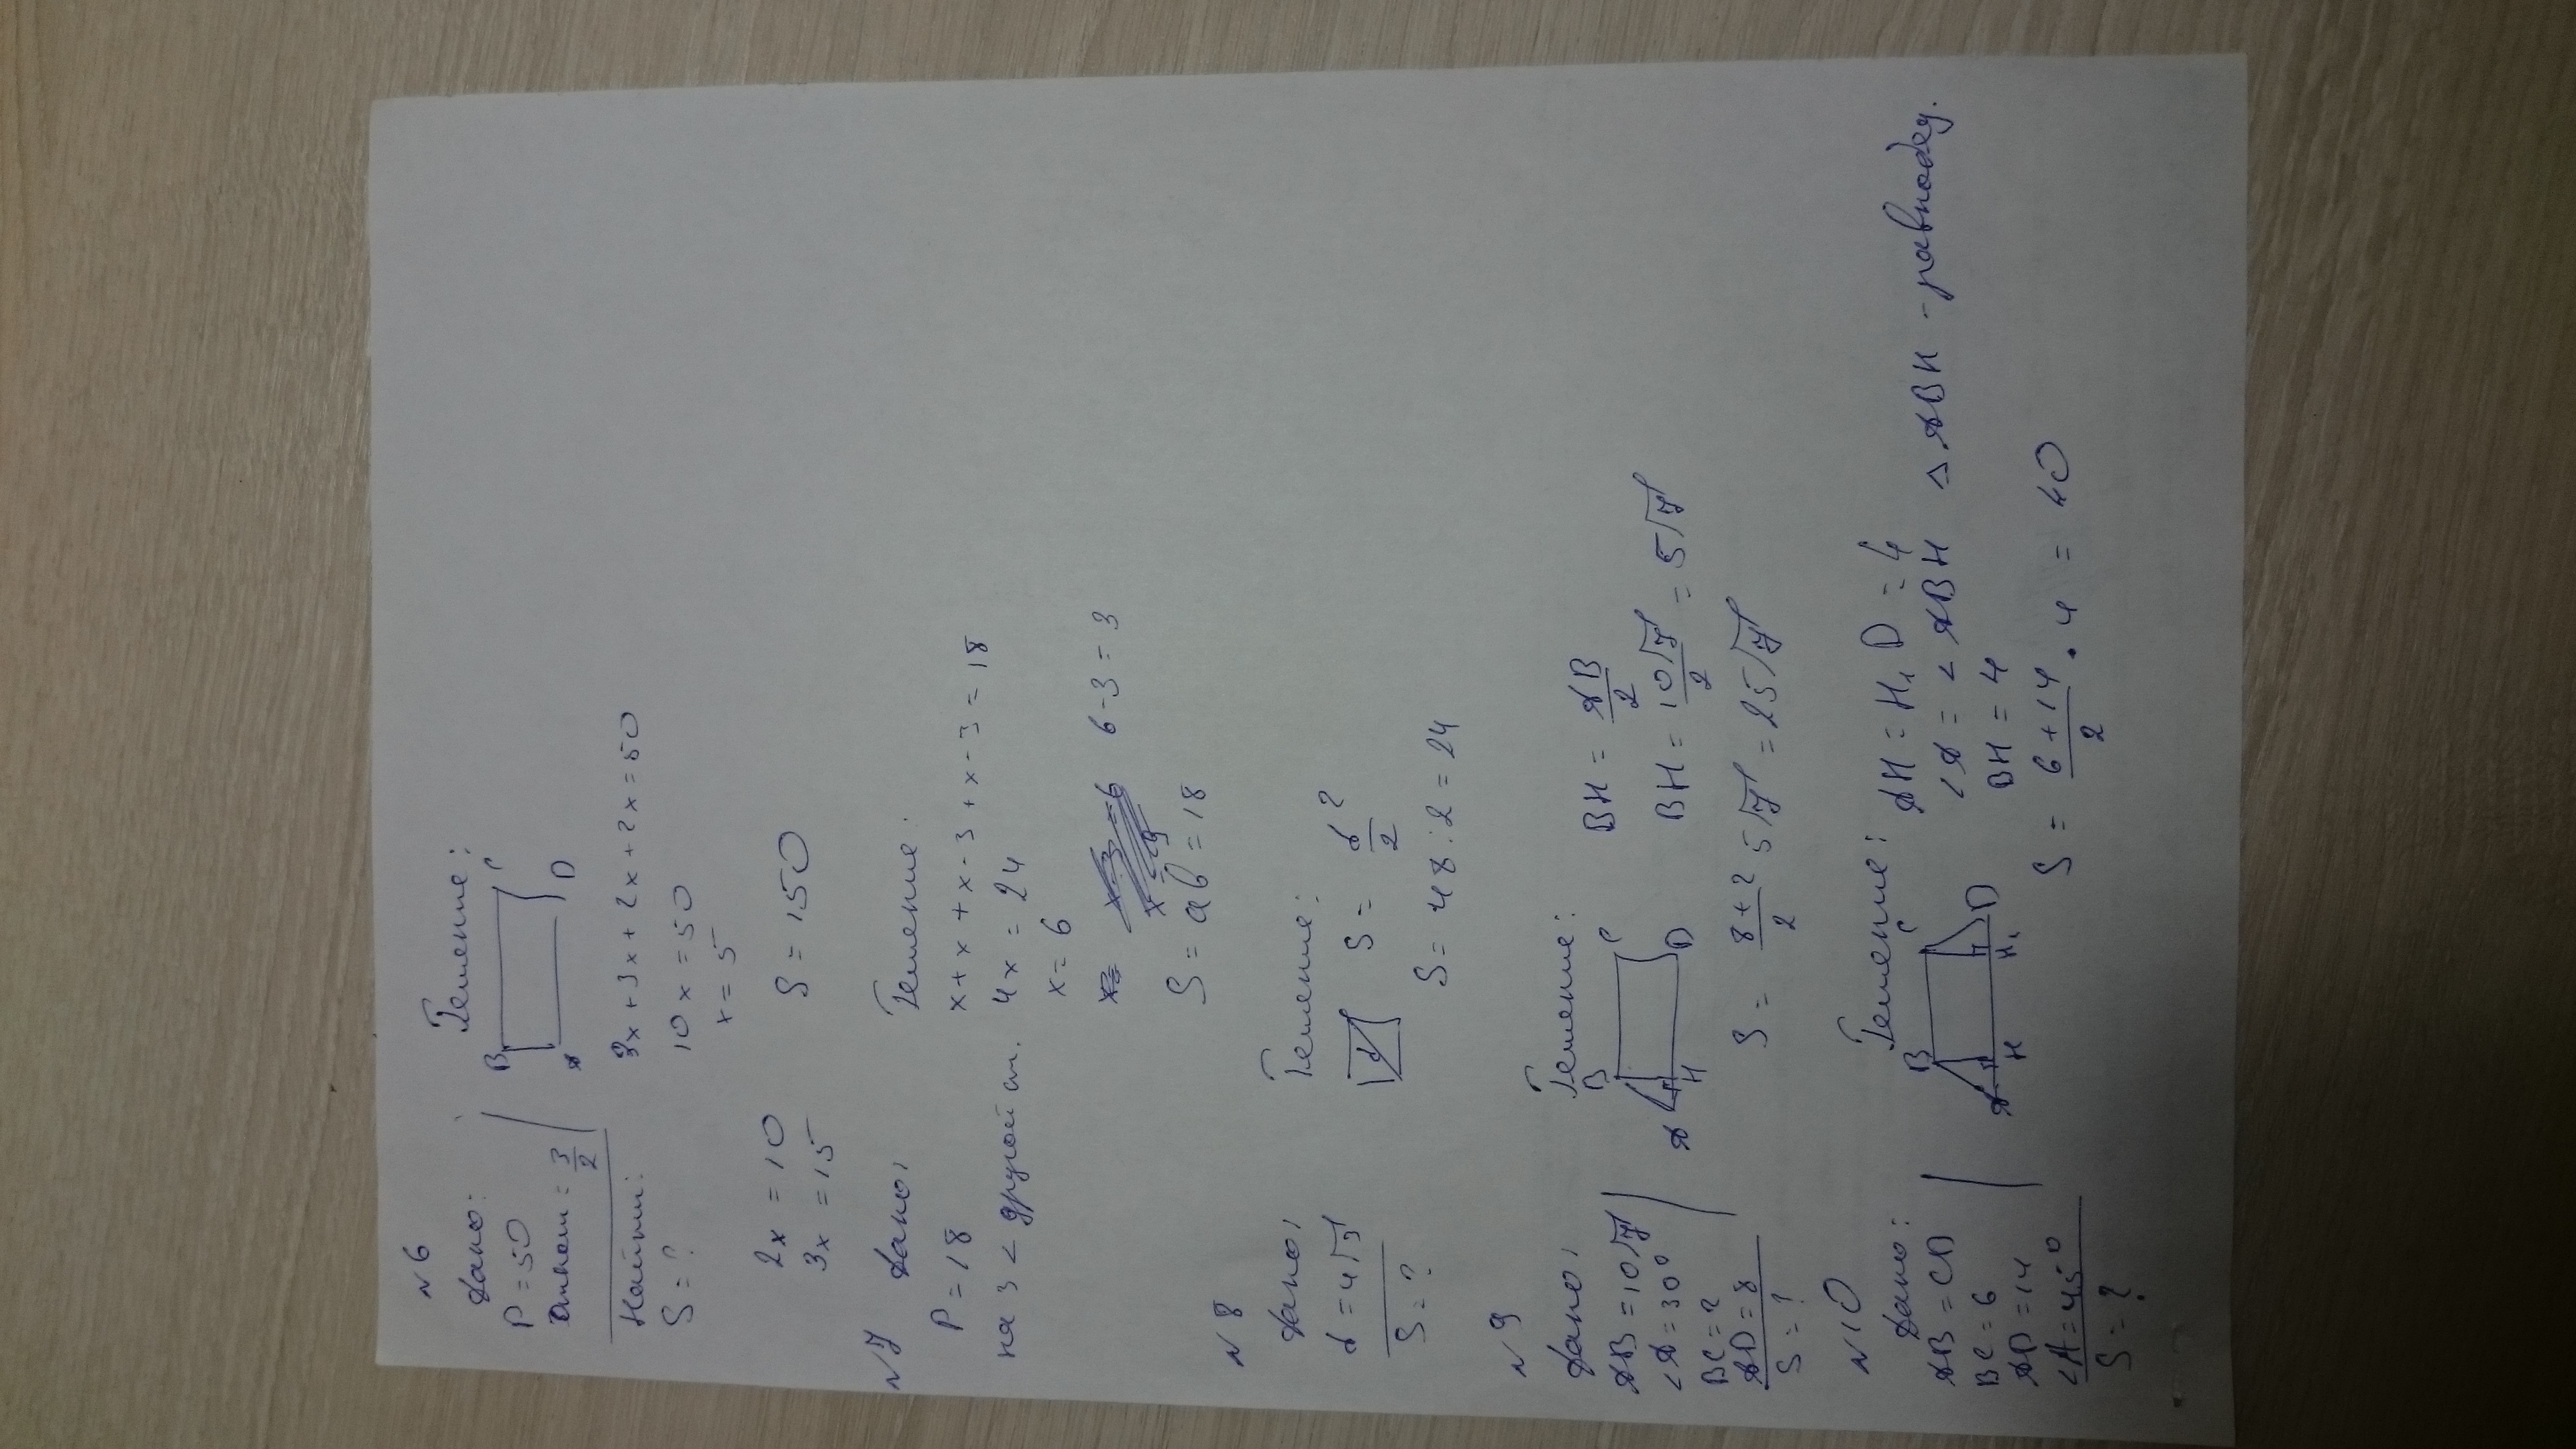 N6
Дано:
P = 50
Отнош = 3/2
Найти:
S = ?
Решение:
B C
A D
3x + 3x + 2x + 2x = 50
10x = 50
x = 5
2x = 10
3x = 15
S = 150
N7 Дано:
P = 18
на 3 < другой ст.
Решение.
x + x + x - 3 + x - 3 = 18
4x = 24
x = 6
6 - 3 = 3
S = ab = 18
N8
Дано:
d = 4√3
S = ?
Решение:
d
S = d²/2
S = 48 : 2 = 24
N9
Дано:
AB = 10√7
∠A = 30°
BC = 2
AD = 8
S = ?
Решение:
B C
A H D
BH = AB/2
BH = 10√7/2 = 5√7
S = 8+2/2 5√7 = 25√7
N10
Дано:
AB = CD
BC = 6
AD = 14
∠A = 45°
S = ?
Решение:
B C
A H H₁ D
AH = H₁D = 4
∠A = ∠ABH △ABH - равнобед.
BH = 4
S = 6+14/2 · 4 = 40